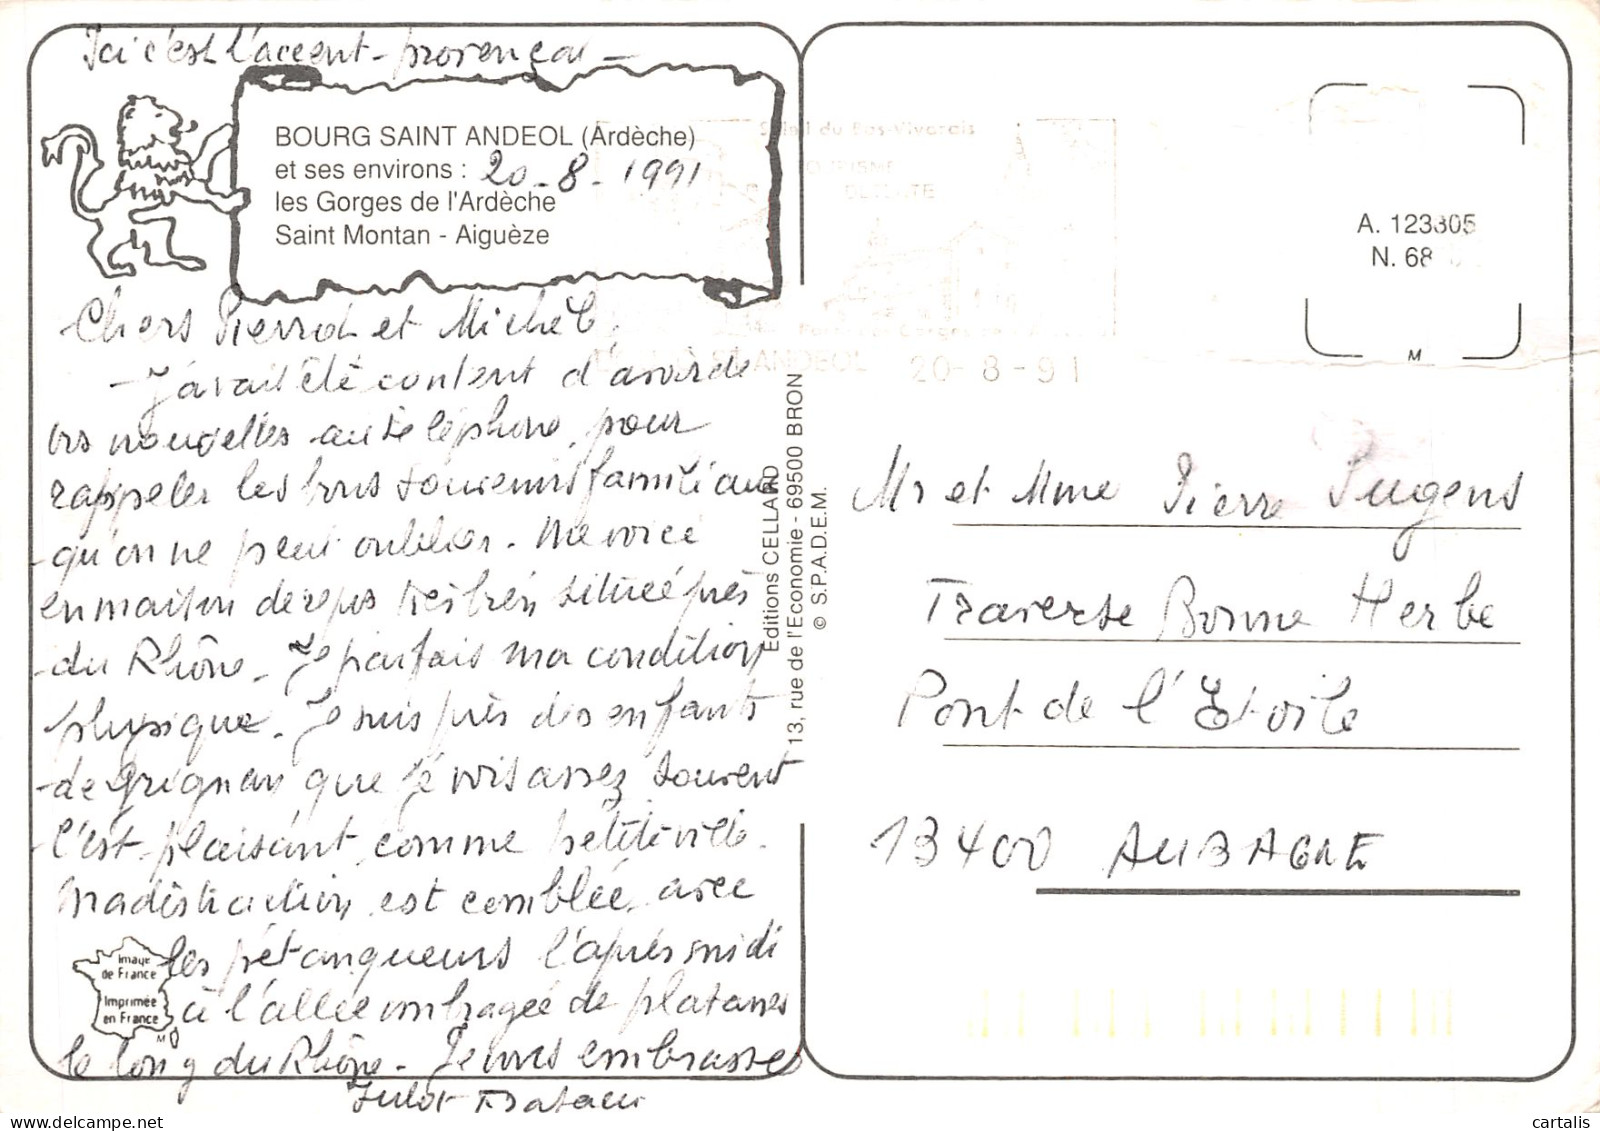 Ici c'est l'accent provençal -
BOURG SAINT ANDEOL (Ardèche)
et ses environs : 20-8-1991
les Gorges de l'Ardèche
Saint Montan - Aiguèze
Chers Pierrot et Michèle
- J'avait été content d'avoir de
vos nouvelles au téléphone, pour
rappeler les bons souvenirs familiaux
qu'on ne peut oublier. Me voici
en maison de repos très bien située près
du Rhône. Je parfais ma condition
physique. Je suis près des enfants
de Grignan que je vois assez souvent
C'est plaisant comme petite ville.
Ma distraction est comblée avec
les pétanqueurs l'après midi
à l'allée ombragée de platanes
le long du Rhône. Je vous embrasse
Image
de France
Imprimée
en France
M
Editions CELLARD
13, rue de l'Economie - 69500 BRON
© S.P.A.D.E.M.
Soleil du Bas-Vivarais
TOURISME
DETENTE
ST ANDEOL 20-8-91
A. 123305
N. 68
M
Mr et Mme Pierre Pugens
Traverse Bonne Herbe
Pont de l'Etoile
13400 AUBAGNE
cartalis